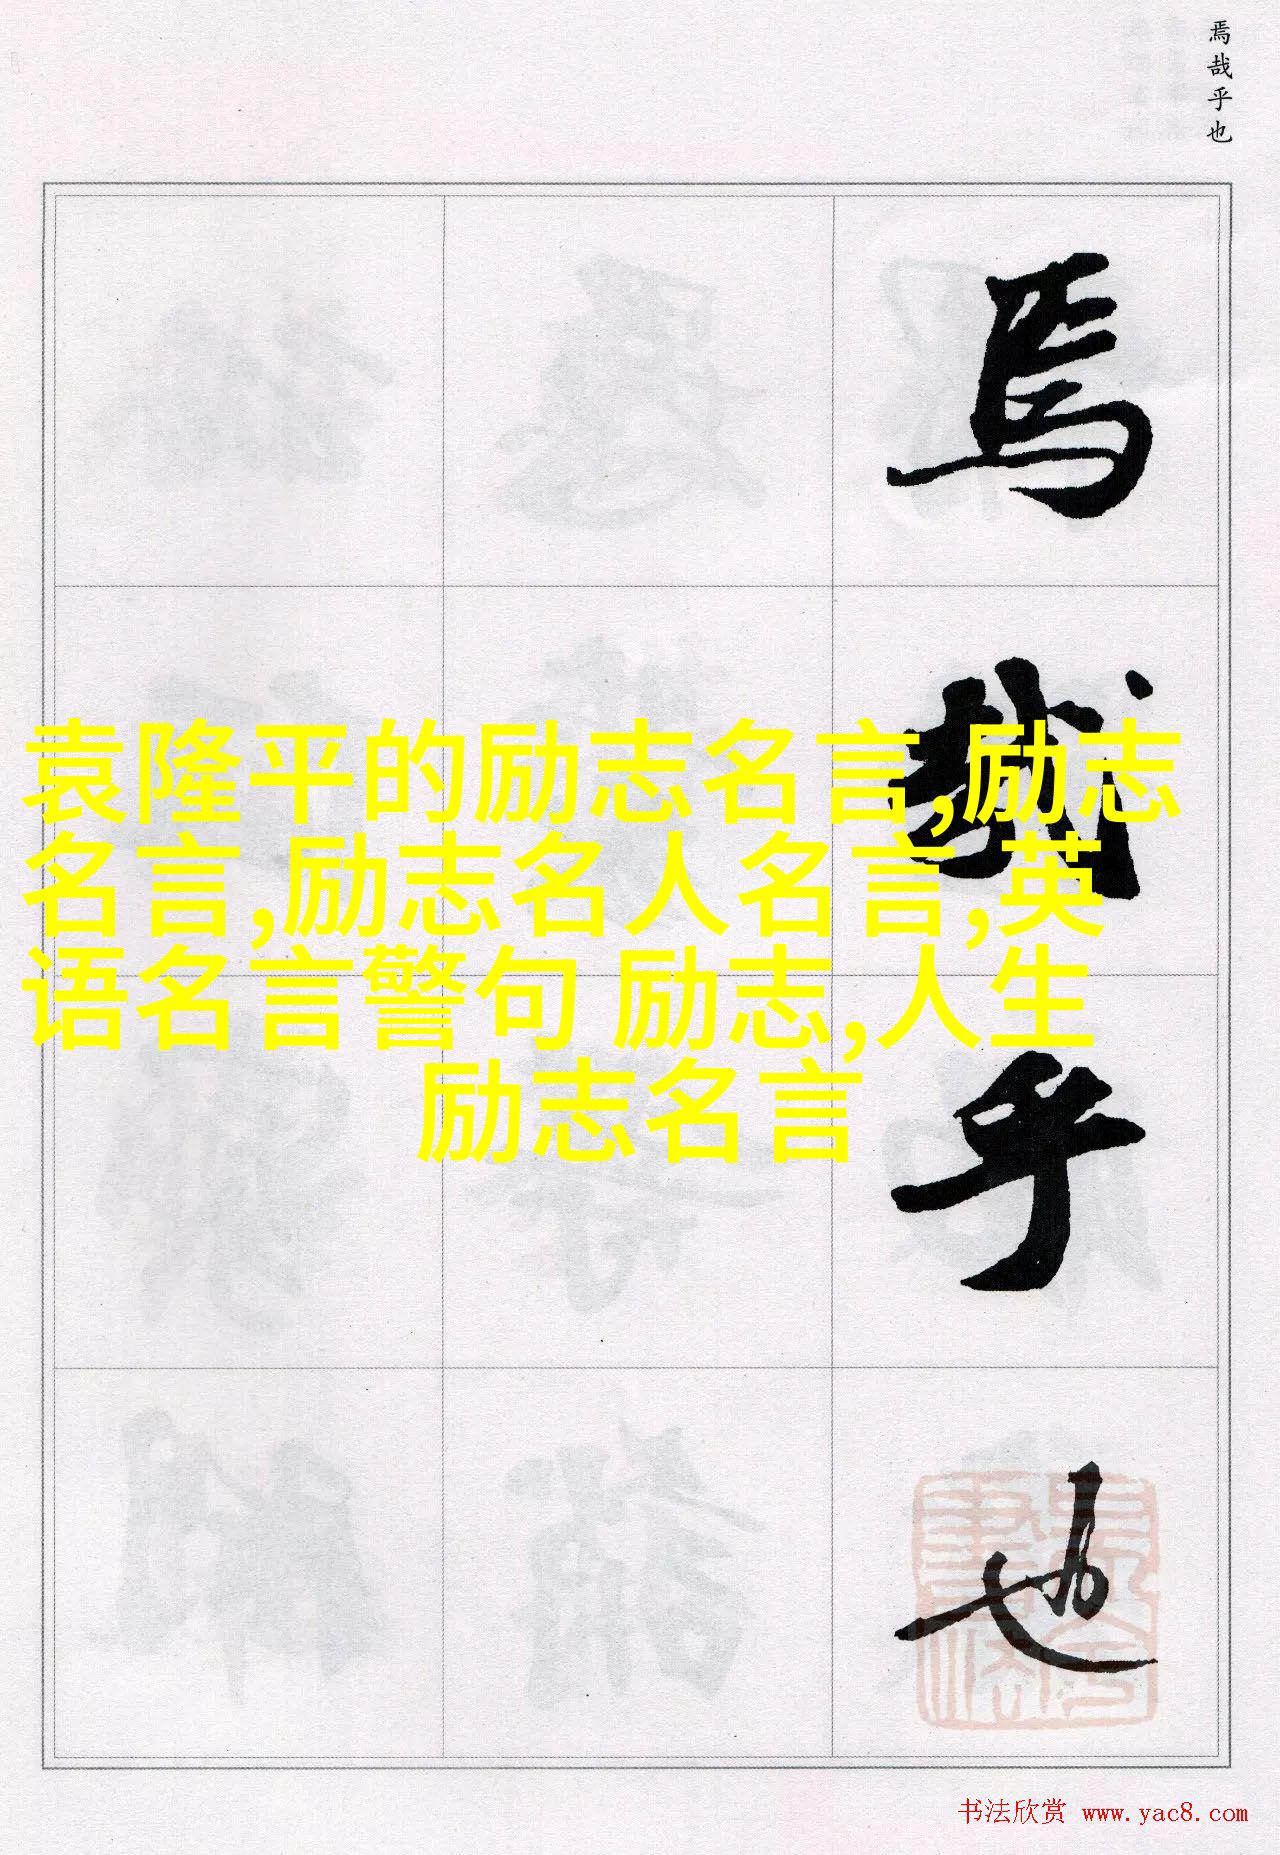 焉哉乎也
焉
哉
乎
也
袁隆平的励志名言,励志
名言,励志名人名言,英
语名言警句 励志,人生
励志名言
书法欣赏 www.yac8.com